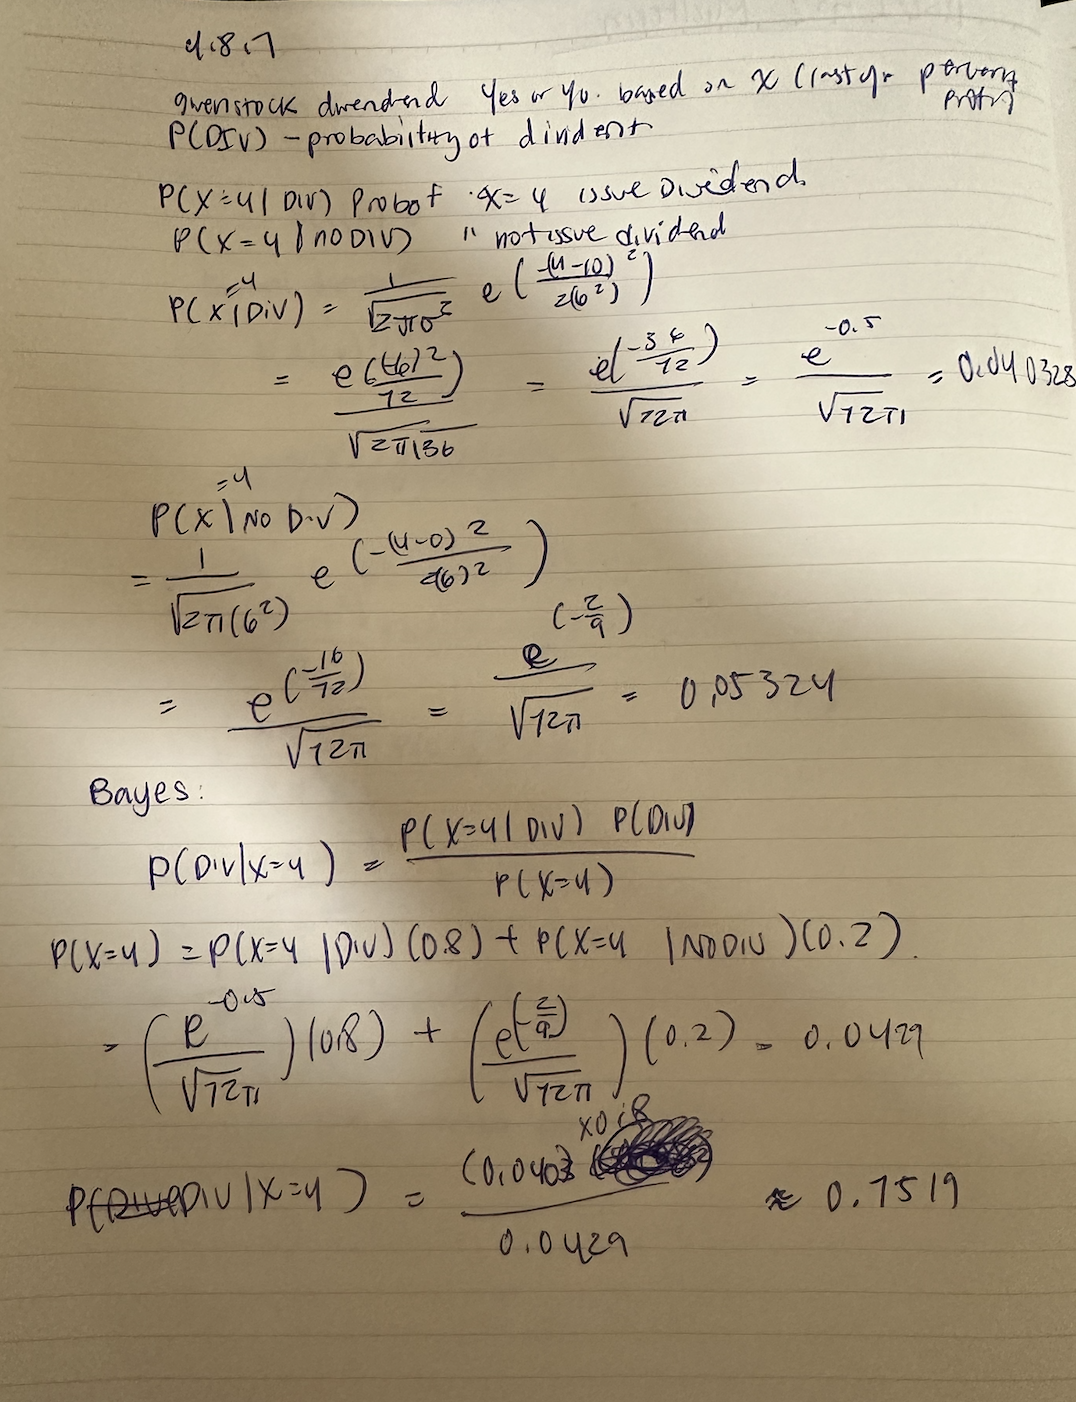 4.8.7
given stock dividend Yes or no. based on X (last yr percent profit)
P(DIV) - probability of divident
P(X=4 | DIV) Prob of X=4 issue Dividend.
P(X=4 | NO DIV) " not issue dividend
P(X=4 | DIV) = 1/√(2πσ²) e(-(4-10)²/2(6²))
= e((-6)²/72)/√(2π136) = e(-36/72)/√(72π) = e^(-0.5)/√(72π) = 0.040328
P(X=4 | NO DIV)
= 1/√(2π(6²)) e(-(4-0)²/2(6)²)
= e(-16/72)/√(72π) = e^(-2/9)/√(72π) = 0.05324
Bayes:
P(DIV|X=4) = P(X=4 | DIV) P(DIV) / P(X=4)
P(X=4) = P(X=4 | DIV)(0.8) + P(X=4 | NO DIV)(0.2).
= (e^(-0.5)/√(72π))(0.8) + (e^(-2/9)/√(72π))(0.2) = 0.0429
P(DIV | X=4) = (0.0403 x0.8)/0.0429 ≈ 0.7519